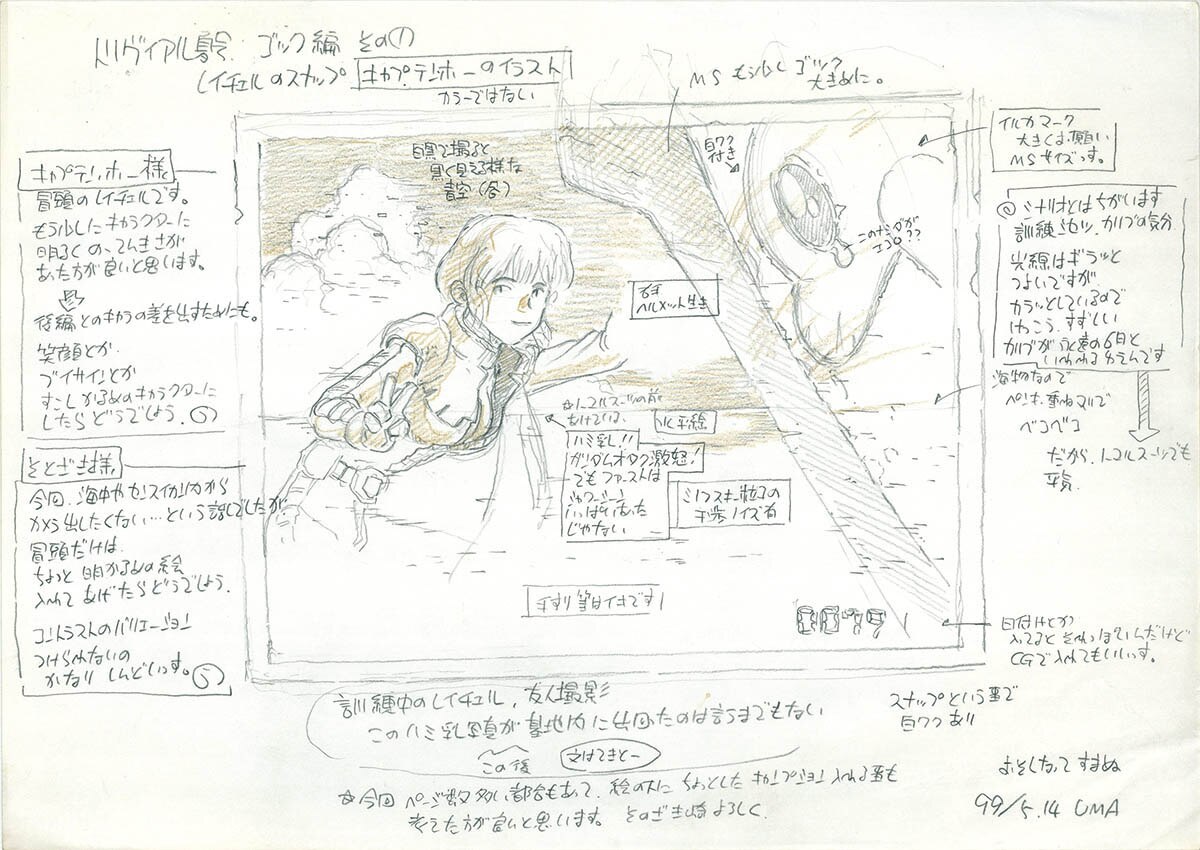 トリヴィアル
ゴック編 その①
レイチェルのスナップ キャプテンホーのイラスト
カラーではない
MS もう少し ゴック
大きめに。
キャプテンホー様
冒頭のレイチェルです。
もう少しキャラクターに
明るく
あった方が良いと思います。
後編とのキャラの差を出すためにも。
笑顔とか
ブイサインとか
すこしかるめのキャラクターに
したらどうでしょう。
白黒で撮ると
黒く見える様な
青空
白ワク
付き
イルカマーク
大きくお願い
MSサイズっす。
シナリオとはちがいます
訓練
カリブの気分
光線はギラッと
つよいですが
カラッとしているので
けっこう、すずしい
カリブが永遠の6月と
いわれるゆえんです
海物なので
ベコベコ
だから、ノーマルスーツでも
平気
ヘルメット
ノーマルスーツの前
あけている。
水平線
ハミ乳!!
ガンダムオタク激怒!
でもファーストは
いっぱいあった
じゃない
ミノフスキー粒子の
干渉ノイズ有
手すり等はイキです!
0079
そとざき様
今回、海中や
から出したくない…という話でしたが
冒頭だけは
ちょっと明かるめの絵
入れてあげたらどうでしょう。
コントラストのバリエーション
つけられないの
かなりしんどいっす。
日付けとか
入ってるとそれっぽいんだけど
CGで入れてもいいっす。
訓練中のレイチェル,友人撮影
このハミ乳写真が基地内に出回ったのは言うまでもない
この後
文はてきとー
スナップという事で
白ワクあり
☆今回 ページ数多い都合もあって、絵の下にちょっとしたキャプション入れる事も
考えた方が良いと思います。
よろしく.
おそくなってすまぬ
99/5.14 UMA